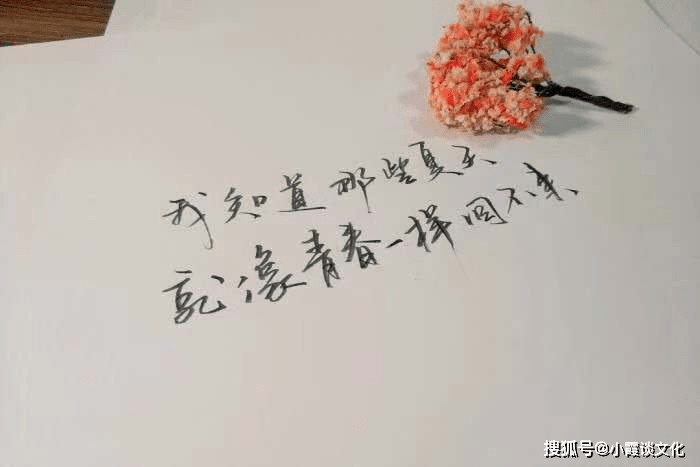 我知道那些夏天
就像青春一样回不来
搜狐号@小霞谈文化